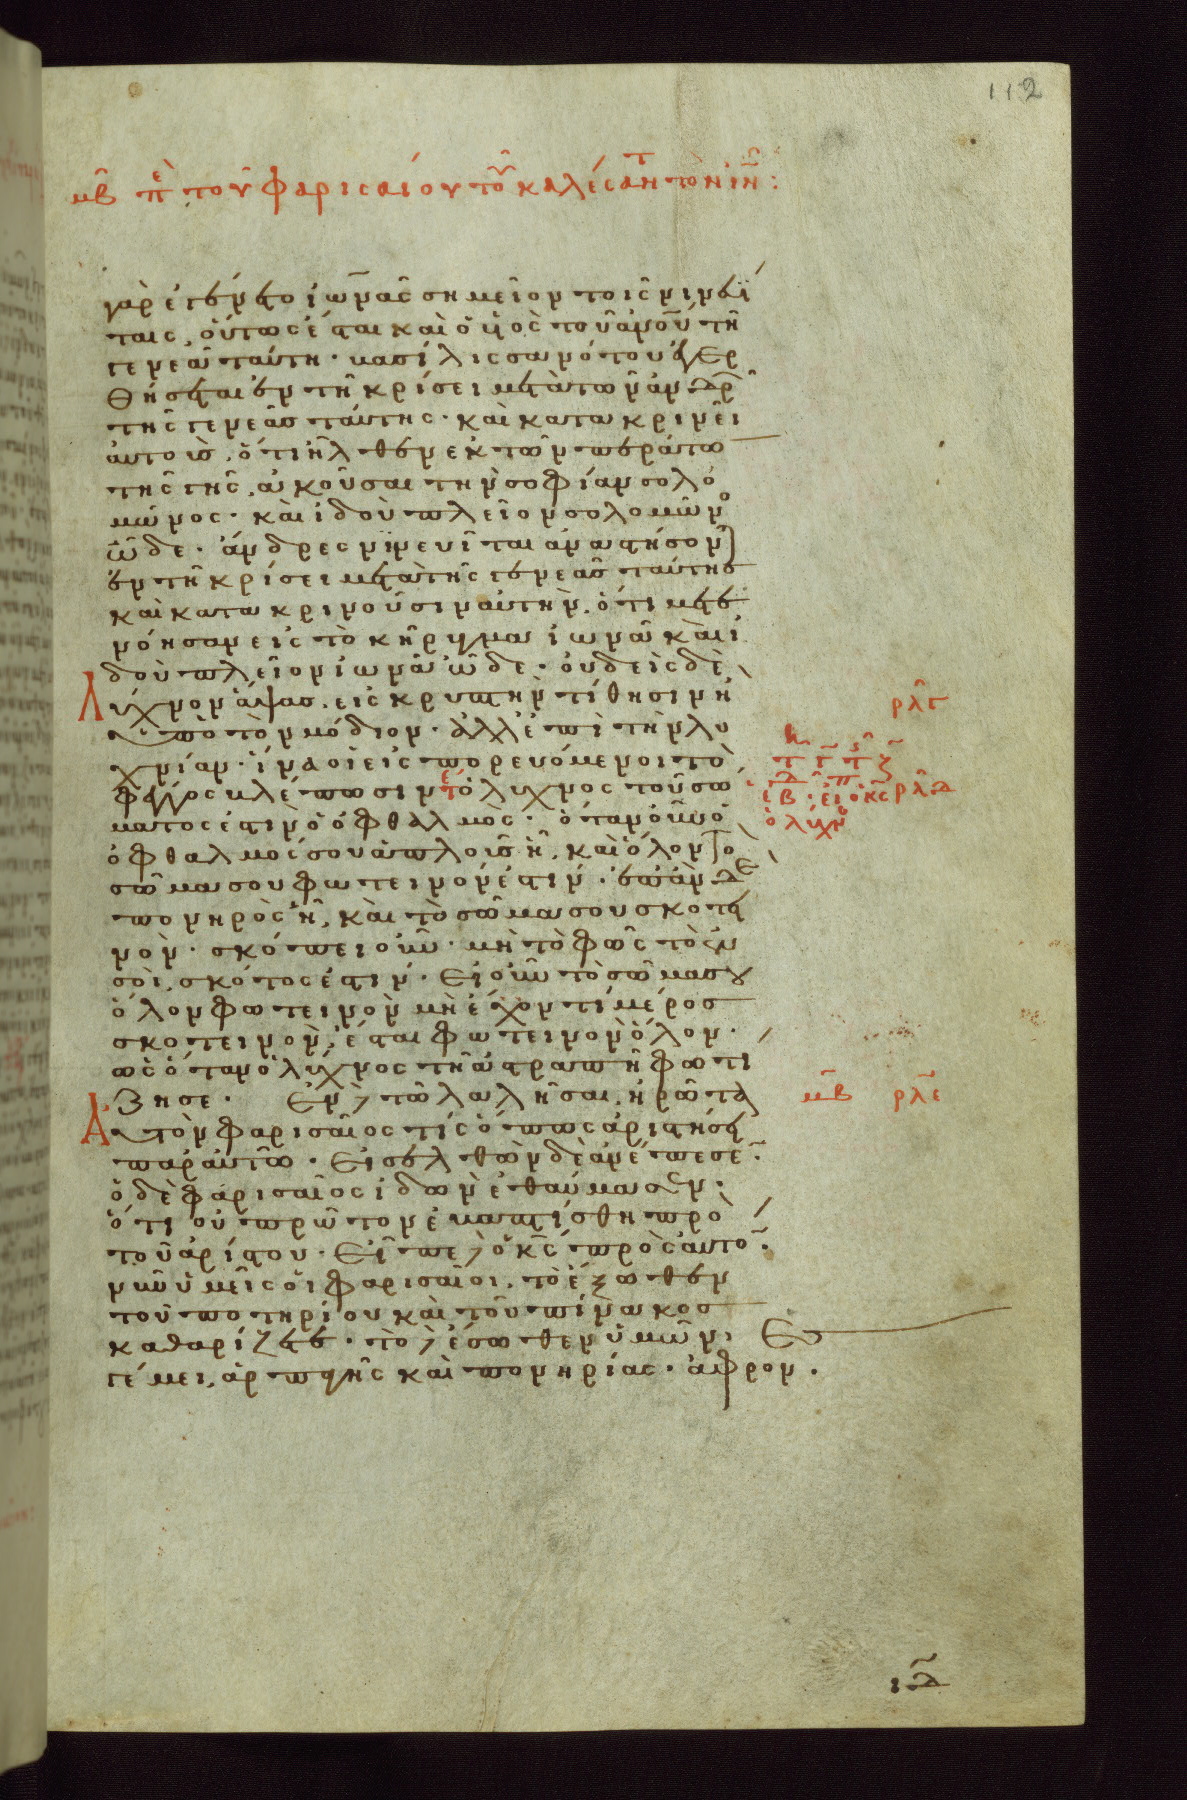 112
μβ πε του φαρισαίου του καλέσαντ τὸν ιν:
γὰρ ἐγένετο ἰωνᾶς σημεῖον τοῖς νινευΐ
ταις, οὕτως ἔσται καὶ ὁ υἱὸς τοῦ ανου τῆ
γενεᾶ ταύτη. βασίλισσα νότου ἐγερ
θήσεται ἐν τῆ κρίσει μετὰ τῶν ἀνδρ
τῆς γενεᾶς ταύτης. καὶ κατακρινεῖ
αὐτούς, ὅτι ἦλθεν ἐκ τῶν περάτω
τῆς γῆς, ἀκοῦσαι τὴν σοφίαν σολο
μῶνος. καὶ ἰδοὺ πλεῖον σολομῶνο
ὧδε. ἄνδρες νινευῖται ἀναστήσον
ἐν τῆ κρίσει μετὰ τῆς γενεᾶς ταύτης
καὶ κατακρινοῦσιν αὐτήν, ὅτι μετε
νόησαν εἰς τὸ κήρυγμα ἰωνᾶ καὶ ἰ
δοὺ πλεῖον ἰωνᾶ ὧδε. οὐδεὶς δὲ
Λύχνον ἅψας, εἰς κρυπτὴν τίθησιν ἢ
ὑπὸ τὸν μόδιον. ἀλλ' ἐπὶ τὴν λυ
χνίαν. ἵνα οἱ εἰσπορευόμενοι τὸ
φέγγος βλέπωσιν. ὁ λύχνος τοῦ σώ
ματος ἐστιν ὁ ὀφθαλμὸς. ὅταν οὖν ὁ
ὀφθαλμός σου ἁπλοῦς ἦ, καὶ ὅλον το
σῶμα σου φωτεινόν ἐστιν. ἐπὰν δε
πονηρὸς ἦ, καὶ τὸ σῶμα σου σκοτει
νόν. σκόπει οὖν. μὴ τὸ φῶς τὸ ἐν
σοὶ, σκότος ἐστιν. Εἰ οὖν τὸ σῶμα σου
ὅλον φωτεινὸν μὴ ἔχον τί μέρος
σκοτεινὸν, ἔσται φωτεινὸν ὅλον.
ὡς ὅταν ὁ λύχνος τῆ ἀστραπῆ φωτί
ζη σε. Ἐν δὲ τῶ λαλῆσαι, ἠρώτα
Αὐτὸν φαρισαῖος τίς ὅπως ἀριστήση
παρ αὐτῶ. Εἰσελθὼν δὲ ἀνέπεσεν.
ὁ δὲ φαρισαῖος ἰδὼν ἐθαύμασεν.
ὅτι οὐ πρῶτον ἐβαπτίσθη πρὸ
τοῦ ἀρίστου. Εἶπε δὲ ὁ κς πρὸς αὐτόν.
νῦν ὑμεῖς οἱ φαρισαῖοι, τὸ ἔξωθεν
τοῦ ποτηρίου καὶ τοῦ πίνακος
καθαρίζετε. τὸ δὲ ἔσωθεν ὑμῶν,
γέμει, ἁρπαγῆς καὶ πονηρίας. ἄφρον.
ρλγ
ρλδ
εἶ ὁ κς
ὁ λύχν
μβ ρλε
ιδ